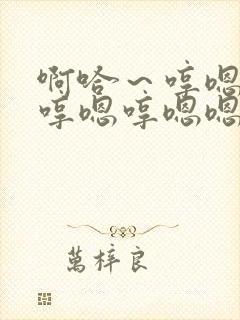 啊哈～哼嗯
哼嗯哼嗯嗯
萬梓良